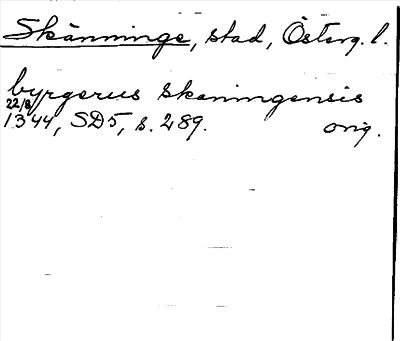 Skänninge, stad, Österg. l.
byrgerus skaningensis
22/8
1344, SD5, s. 289. orig.